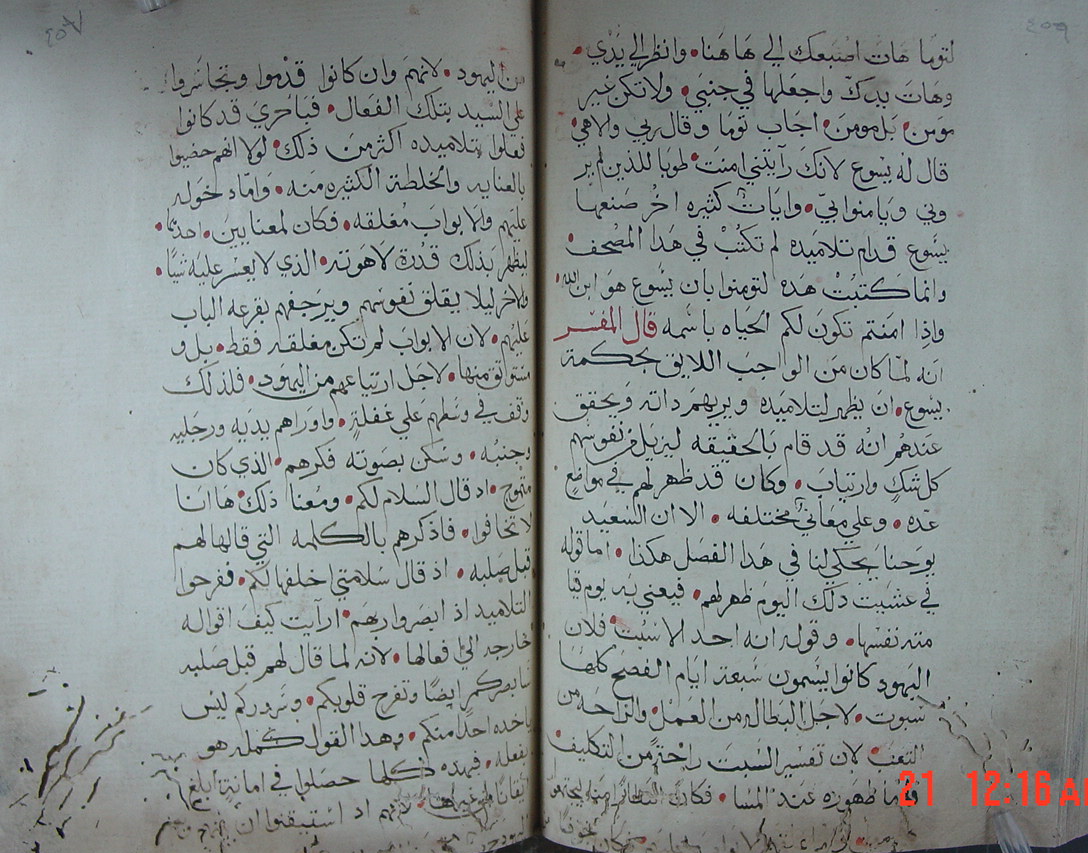 ٤٥٦
لتوما هات اصبعك الي هاهنا • وانظر الي يدي •
وهات يدك واجعلها في جنبي • ولا تكن غير
مومن • بل مومن • اجاب توما وقال ربي والاهي •
قال له يسوع لانك رآيتني امنت • طوبا للذين لم ير
وني ويامنوا بي • وايات كثيره اخر صنعها
يسوع قدام تلاميده لم تكتب في هدا المصحف
وانما كتبت هده لتومنوا بان يسوع هو ابن الله •
وادا امنتم تكون لكم الحياه باسمه قال المفسر
انه لما كان من الواجب اللايق بحكمة
يسوع • ان يظهر لتلاميده ويريهم داته ويحقق
عندهم انه قد قام بالحقيقه ليزيل من نفوسهم
كل شك وارتياب • وكان قد ظهر لهم في مواضع
عده • وعلي معاني مختلفه • الا ان السعيد
يوحنا يحكي لنا في هدا الفصل هكذا • اما قوله
في عشيت دلك اليوم ظهر لهم • فيعني به يوم قيا
مته نفسها • وقوله انه احد الاسبت فلان
اليهود كانوا يسمون سبعة ايام الفصح كلها
سبوت • لاجل البطاله من العمل • والراحه من
التعب لان تفسير السبت راحة من التكليف
واما ظهوره عند المسا • فكان
٤٥٧
من اليهود • لانهم وان كانوا قدموا وتجاسروا
علي السيد بتلك الفعال • فباحري قد كانوا
فعلوا بتلاميده اكثر من ذلك • لولا انهم حضيوا
بالعنايه والخلطة الكثيره منه • واما دخوله
عليهم والابواب مغلقه • فكان لمعنايين • احدهما •
ليظهر بذلك قدرة لاهوته • الذي لا يعسر عليه شيا •
والاخر ليلا يقلق نفوسهم ويرجفهم بقرعه الباب
عليهم • لان الابواب لم تكن مغلقه فقط • بل و
مستوثق منها • لاجل ارتياعهم من اليهود • فلذلك
وقف في وسطهم علي غفلة • واوراهم يديه ورجليه
وجنبه • وسكن بصوته فكرهم • الذي كان
متهوج • اد قال السلام لكم • ومعنا ذلك • ها انا
لا تخافوا • فاذكرهم بالكلمه التي قالها لهم
قبل صلبه • اذ قال سلامتي اخلفها لكم • ففرحوا
التلاميد اذ ابصروا ربهم • ارآيت كيف اقواله
خارجه الي فعالها • لانه لما قال لهم قبل صلبه
سابصركم ايضا وتفرح قلوبكم • وسروركم ليس
ياخده احدا منكم • وهدا القول كمله هو
بفعله • فبهده كلها حصلوا في امانة ابلغ